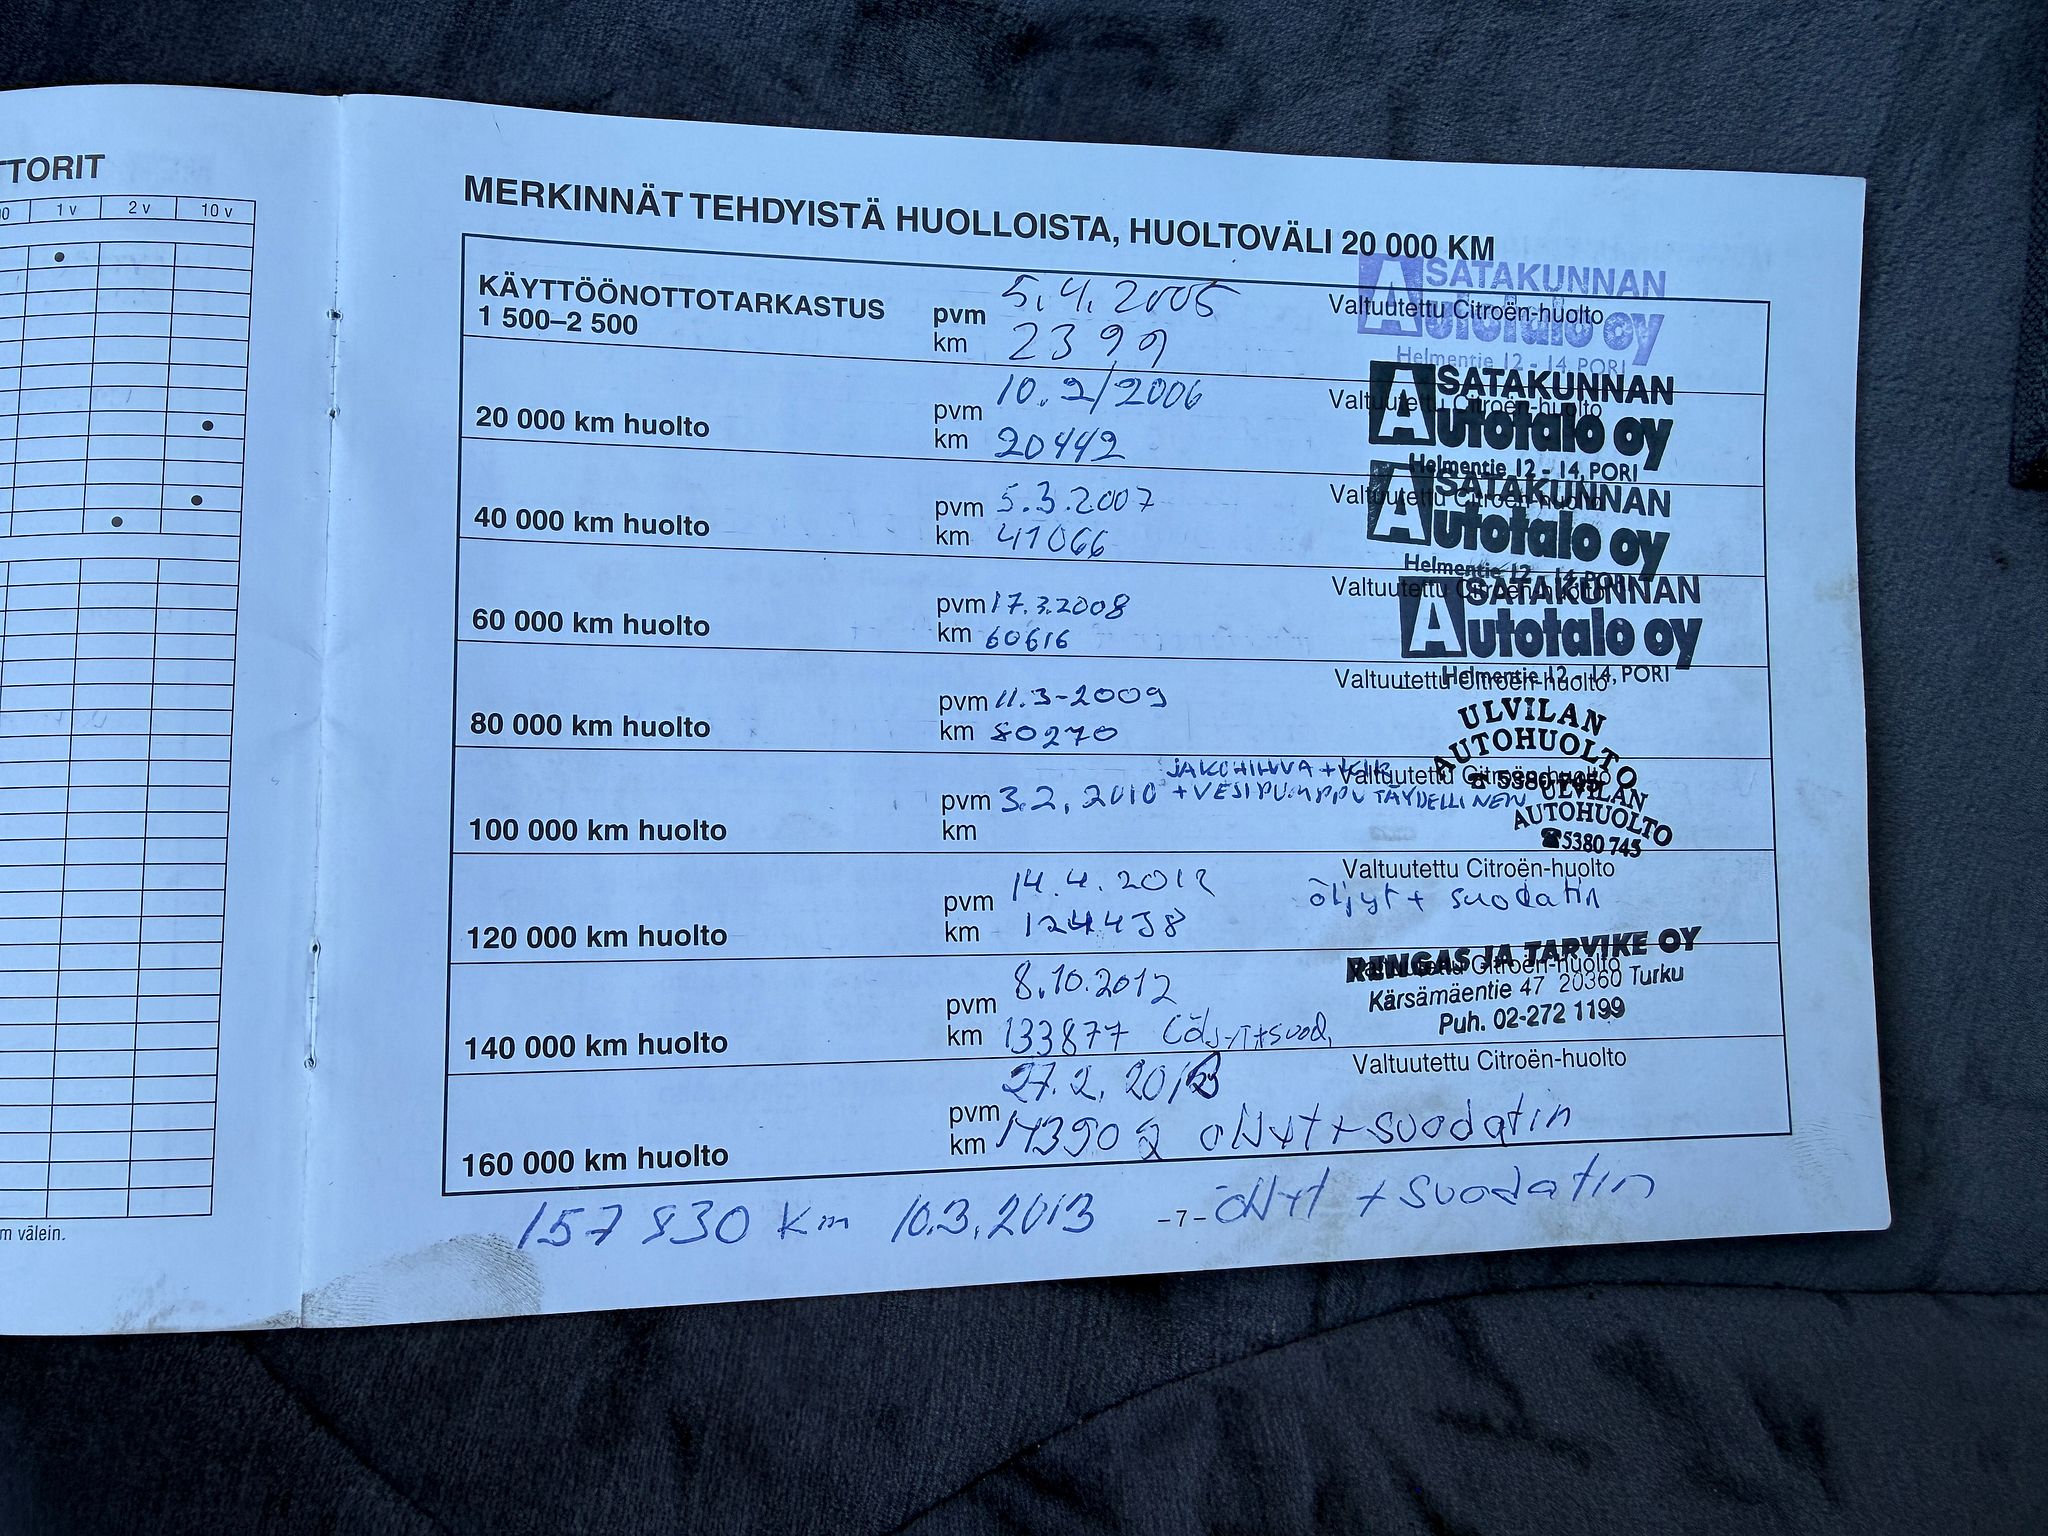 TTORIT
1 v 2 v 10 v
m välein.
MERKINNÄT TEHDYISTÄ HUOLLOISTA, HUOLTOVÄLI 20 000 KM
KÄYTTÖÖNOTTOTARKASTUS
1 500–2 500
pvm 5.4.2005
km 2399
Valtuutettu Citroën-huolto
SATAKUNNAN
Autotalo oy
Helmentie 12 - 14, PORI
20 000 km huolto
pvm 10.2/2006
km 20442
Valtuutettu Citroën-huolto
SATAKUNNAN
Autotalo oy
Helmentie 12 - 14, PORI
40 000 km huolto
pvm 5.3.2007
km 41066
Valtuutettu Citroën-huolto
SATAKUNNAN
Autotalo oy
Helmentie 12 - 14, PORI
60 000 km huolto
pvm 17.3.2008
km 60616
Valtuutettu Citroën-huolto
SATAKUNNAN
Autotalo oy
Helmentie 12 - 14, PORI
80 000 km huolto
pvm 11.3-2009
km 80270
Valtuutettu Citroën-huolto
ULVILAN
AUTOHUOLTO
☎ 5380 745
100 000 km huolto
JAKOHIHNA +
pvm 3.2.2010 + VESIPUMPPU TÄYDELLINEN
km
Valtuutettu Citroën-huolto
ULVILAN
AUTOHUOLTO
☎ 5380 745
120 000 km huolto
pvm 14.4.2012
km 124438
Valtuutettu Citroën-huolto
öljyt + suodatin
140 000 km huolto
pvm 8.10.2012
km 133877 suod.
Valtuutettu Citroën-huolto
RENGAS JA TARVIKE OY
Kärsämäentie 47 20360 Turku
Puh. 02-272 1199
160 000 km huolto
pvm 27.2.
km öljyt + suodatin
Valtuutettu Citroën-huolto
157 830 km 10.3.2013 öljyt + suodatin
– 7 –